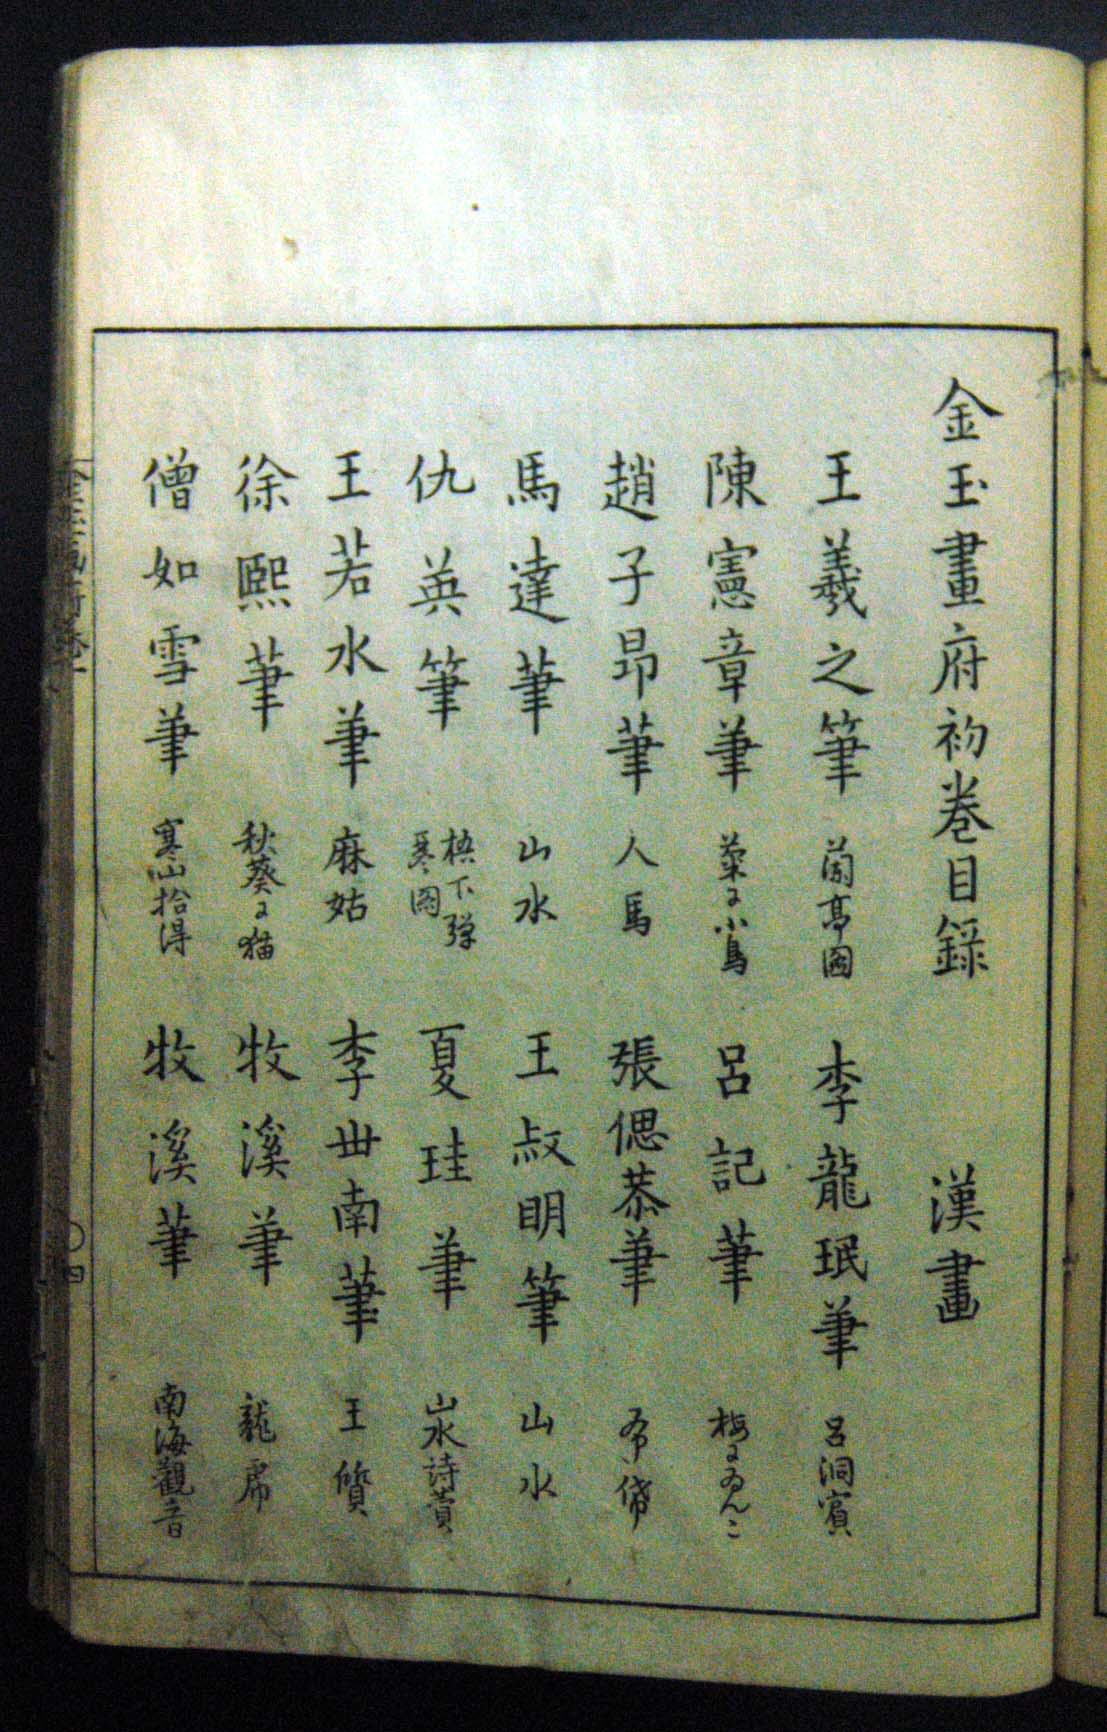 金玉畫府初巻目録　漢畫
王羲之筆　蘭亭圖　李龍珉筆　呂洞賓
陳憲章筆　菊ニ小鳥　呂記筆　梅ニゐんこ
趙子昂筆　人馬　張偲恭筆　布袋
馬達筆　山水　王叔明筆　山水
仇英筆　梧下弾琴圖　夏珪筆　山水詩賛
王若水筆　麻姑　李世南筆　王質
徐熙筆　秋葵ニ猫　牧溪筆　龍虎
僧如雪筆　寒山拾得　牧溪筆　南海觀音
〇四